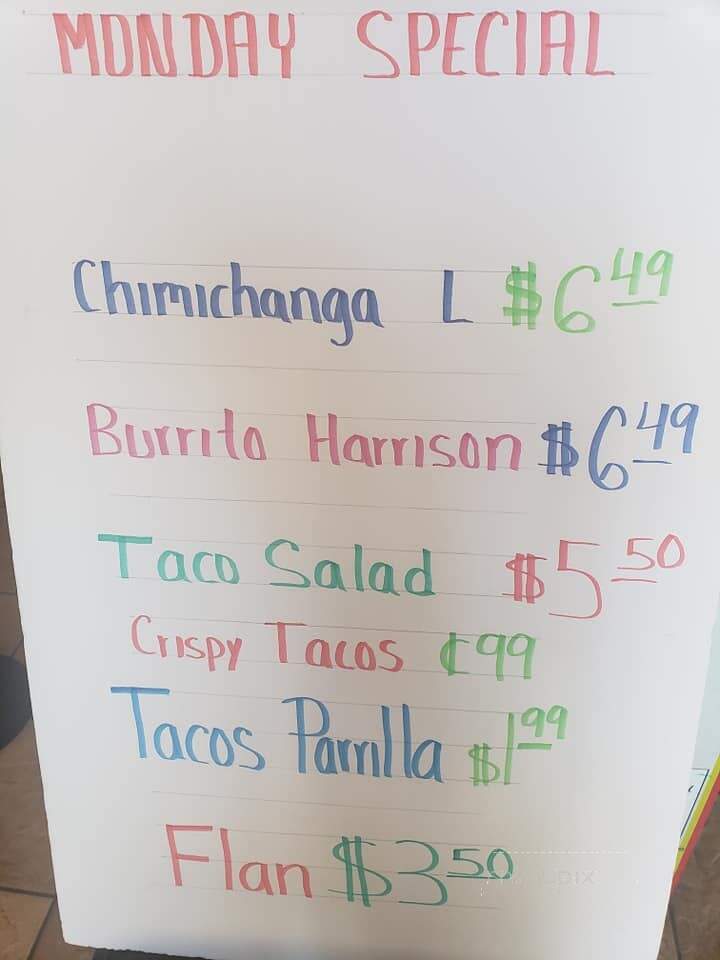 MONDAY SPECIAL
Chimichanga L $6 49
Burrito Harrison $6 49
Taco Salad $5 50
Crispy Tacos ¢99
Tacos Parrilla $1 99
Flan $3 50